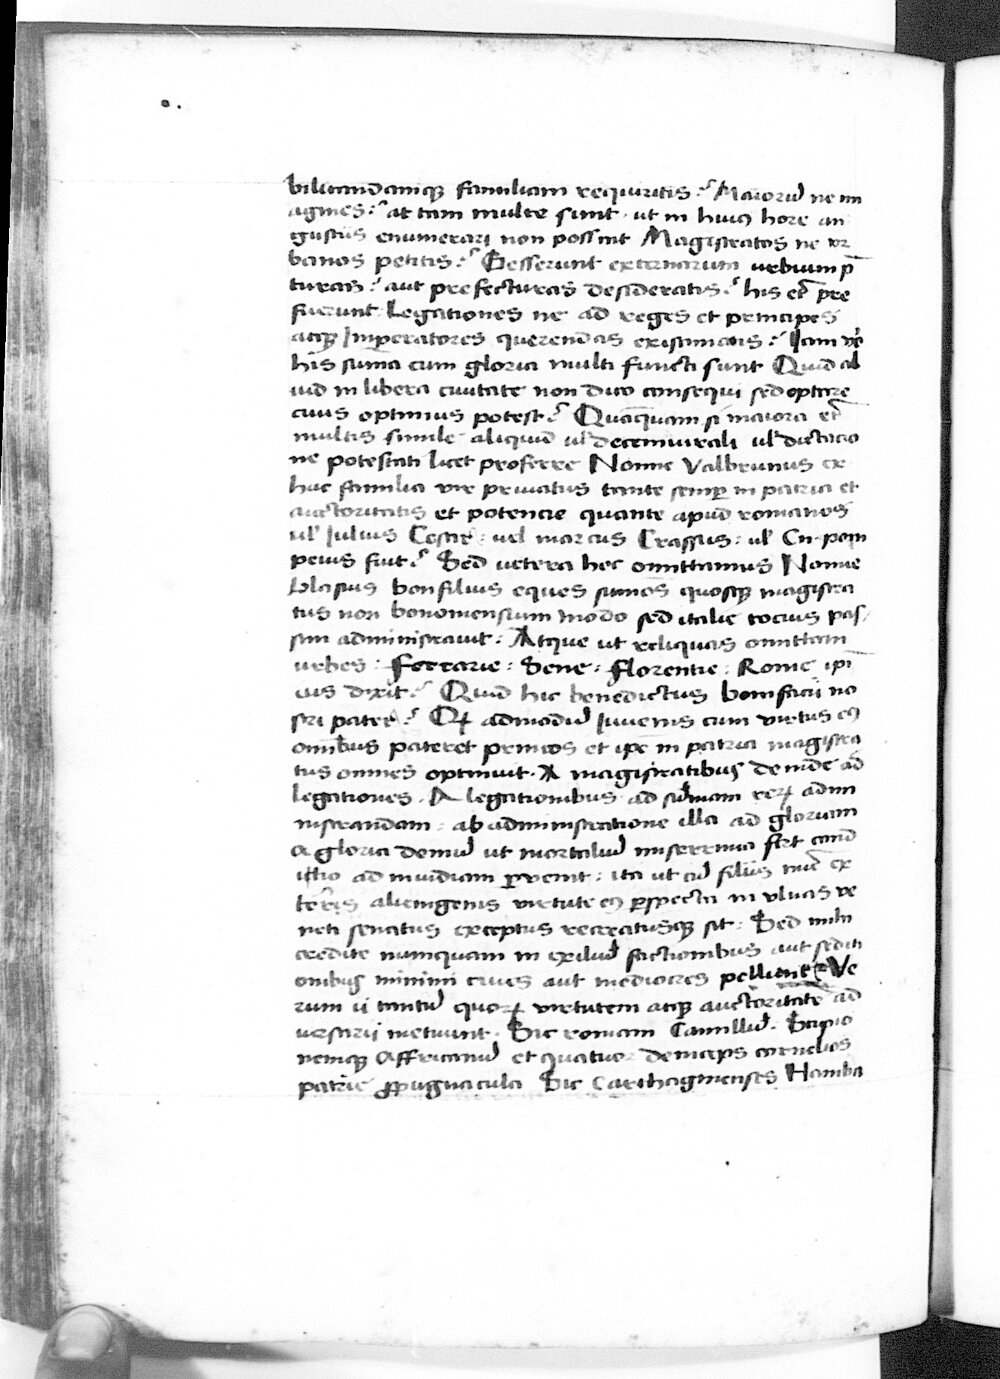 bilitandamque familiam requiritis? Maiorū ne im
agines? at tam multe sunt · ut in huius hore an
gustiis enumerari non possint Magistratos ne ur
banos petitis? Gesserunt externarum urbium p̄
turas? aut prefecturas desideratis? his etiā pre
fuerunt Legationes ne ad reges et principes
atque Imperatores querendas existimatis? Iam vō
his suma cum gloria multi functi sunt Quid al
iud in libera civitate non dico consequi sed optare
civis optimus potest? Quāquam si maiora et
multis simile aliquid ul' decemvirali ul' dictatio
ne potestati licet proferre Nonne Valbrunus ex
hac familia vir privatus tante semper in patria et
auctoritatis et potencie quante apud romanos
ul' Iulius Cesar · vel marcus Crassus · ul' Cn · pom
peius fuit? Sed vetera hec omittamus Nonne
blasius bonfilius eques sumos quosque magistra
tus non bononiensium modo sed italie tocius pas
sim administravit · Atque ut reliquas omittam
urbes · Ferrarie · Sene · Florentie · Rome ipī
ius dixit? Quid hic benedictus bonifacii no
stri pater? Qui admodū Iuvenis cum virtus eius
omībus pateret primos et ipe in patria magistra
tus omnes optinuit · A magistratibus deinde ad
legationes · A legationibus ad sūmam rerum admi
nistrandam · ab administratione illa ad gloriam
a gloria demū ut mortaliū miserrima fert cond
itio ad invidiam pervenit · ita ut cū filiis nūc ex
teris alienigenis virtute eius perspecta in ulnas ve
neti senatus exceptus recreatusque sit · Sed mihi
credite numquam in exiliū factionibus aut sediti
onibus minimi cives aut mediocres pelliunt Ve
rum ii tantū quorum virtutem atque auctoritatē ad
versarii metuunt · Sic romam Camillū · Scipio
nemque Affricanū et quatuor deinceps cornelios
patrie propugnacula Sic Carthaginenses Hamba